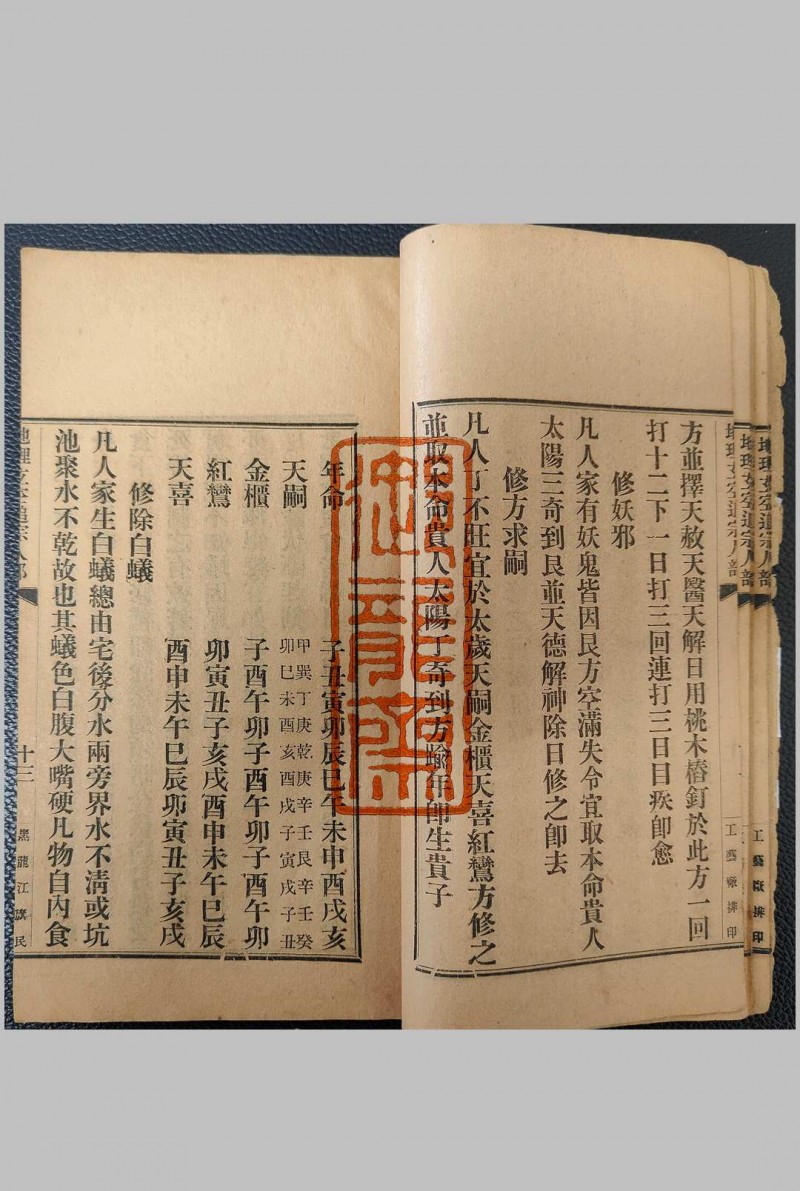 方並擇天赦天醫天解日用桃木樁釘於此方一回
打十二下一日打三回連打三日目疾卽愈
修妖邪
凡人家有妖鬼皆因艮方空滿失令宜取本命貴人
太陽三奇到艮並天德解神除日修之卽去
修方求嗣
凡人丁不旺宜於太歲天嗣金櫃天喜紅鸞方修之
並取本命貴人太陽丁奇到方踰年卽生貴子
年命 子丑寅卯辰巳午未申酉戌亥
天嗣 甲巽丁庚乾庚辛壬艮辛壬癸
卯巳未酉亥酉戌子寅戌子丑
金櫃 子酉午卯子酉午卯子酉午卯
紅鸞 卯寅丑子亥戌酉申未午巳辰
天喜 酉申未午巳辰卯寅丑子亥戌
修除白蟻
凡人家生白蟻總由宅後分水兩旁界水不清或坑
池聚水不乾故也其蟻色白腹大嘴硬凡物自內食
地理玄空通宗人部
十三
黑龍江旗民
地理玄空通宗人部
工藝廠排印
地理玄空通宗人部
工藝廠排印